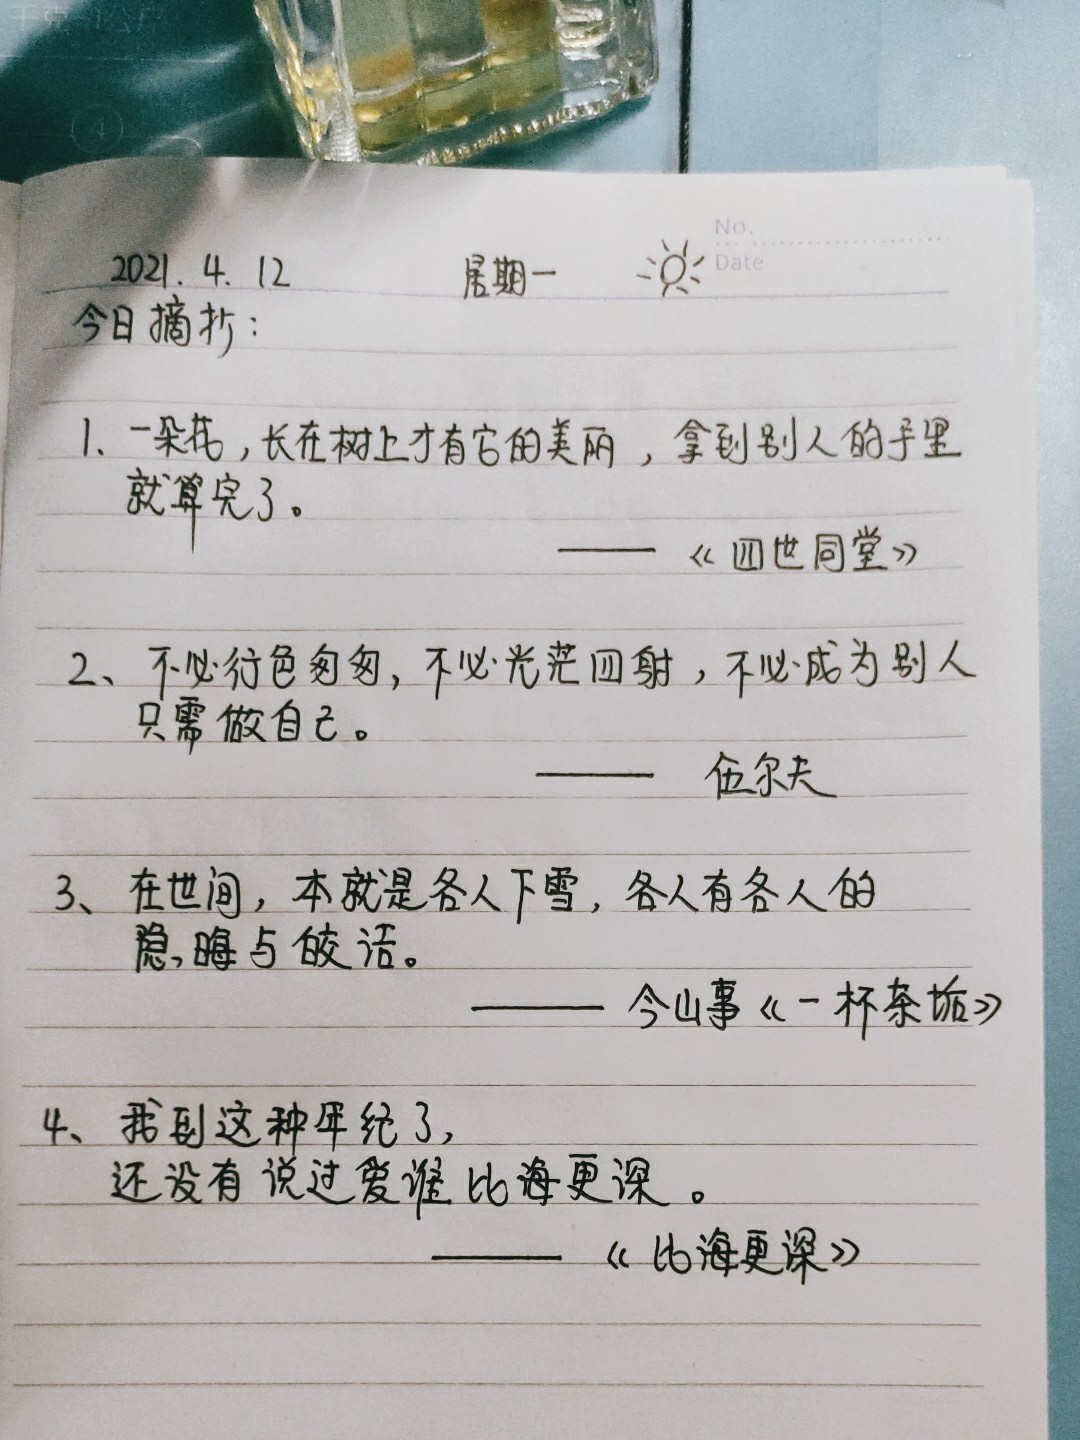 No.
2021.4.12 星期一 Date
今日摘抄：
1、一朵花，长在树上才有它的美丽，拿到别人的手里
就算完了。
——《四世同堂》
2、不必行色匆匆，不必光茫四射，不必成为别人
只需做自己。
—— 伍尔夫
3、在世间，本就是各人下雪，各人有各人的
隐晦与皎洁。
——今山事《一杯茶垢》
4、我到这种年纪了，
还没有说过爱谁比海更深。
——《比海更深》